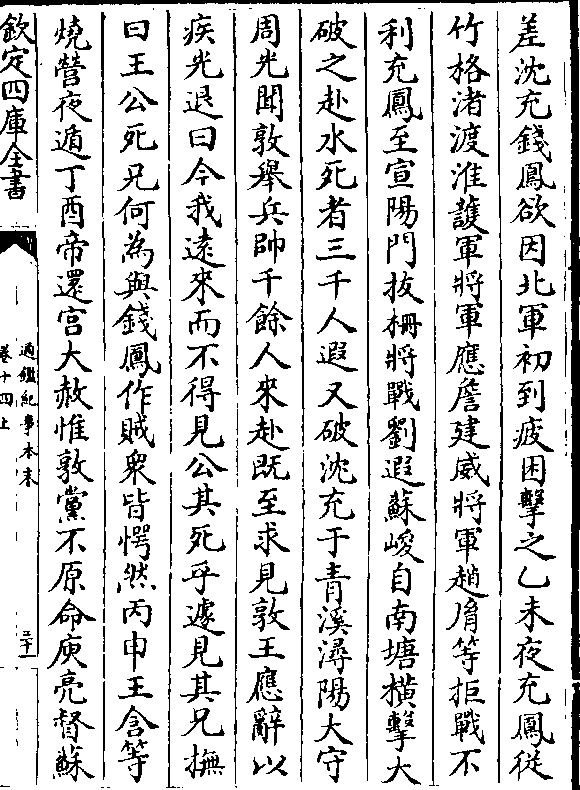 差沈充錢鳳欲因北軍初到疲困擊之乙未夜充鳳從
竹格渚渡淮護軍將軍應詹建威將軍趙𦙍等拒戰不
利充鳳至宣陽門拔柵將戰劉遐蘇峻自南塘橫擊大
破之赴水死者三千人遐又破沈充于青溪潯陽大守
周光聞敦舉兵帥千餘人來赴既至求見敦王應辭以
疾光退曰今我遠來而不得見公其死乎遽見其兄撫
曰王公死兄何為與錢鳳作賊衆皆愕然丙申王含等
燒營夜遁丁酉帝還宮大赦惟敦黨不原命庾亮督蘇
欽定四庫全書
通鑑紀事本末
卷十四上
二十一